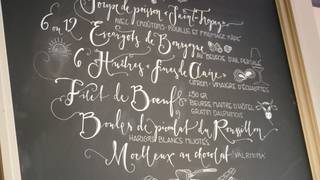 Soupe de poisson "Saint-Tropez"
AVEC CROÛTONS, ROUILLE ET FROMAGE RÂPÉ
6 ou 12 Escargots de Bourgogne
AU BEURRE D'AIL PERSILLÉ
6 Huîtres "Fines de Claire"
CITRON, VINAIGRE D'ÉCHALOTTES
Filet de Boeuf 250 GR
BEURRE MAITRE D'HÔTEL
GRATIN DAUPHINOIS
Boules de picolat du Roussillon
HARICOTS BLANCS MIJOTÉS
Moelleux au chocolat VALRHONA